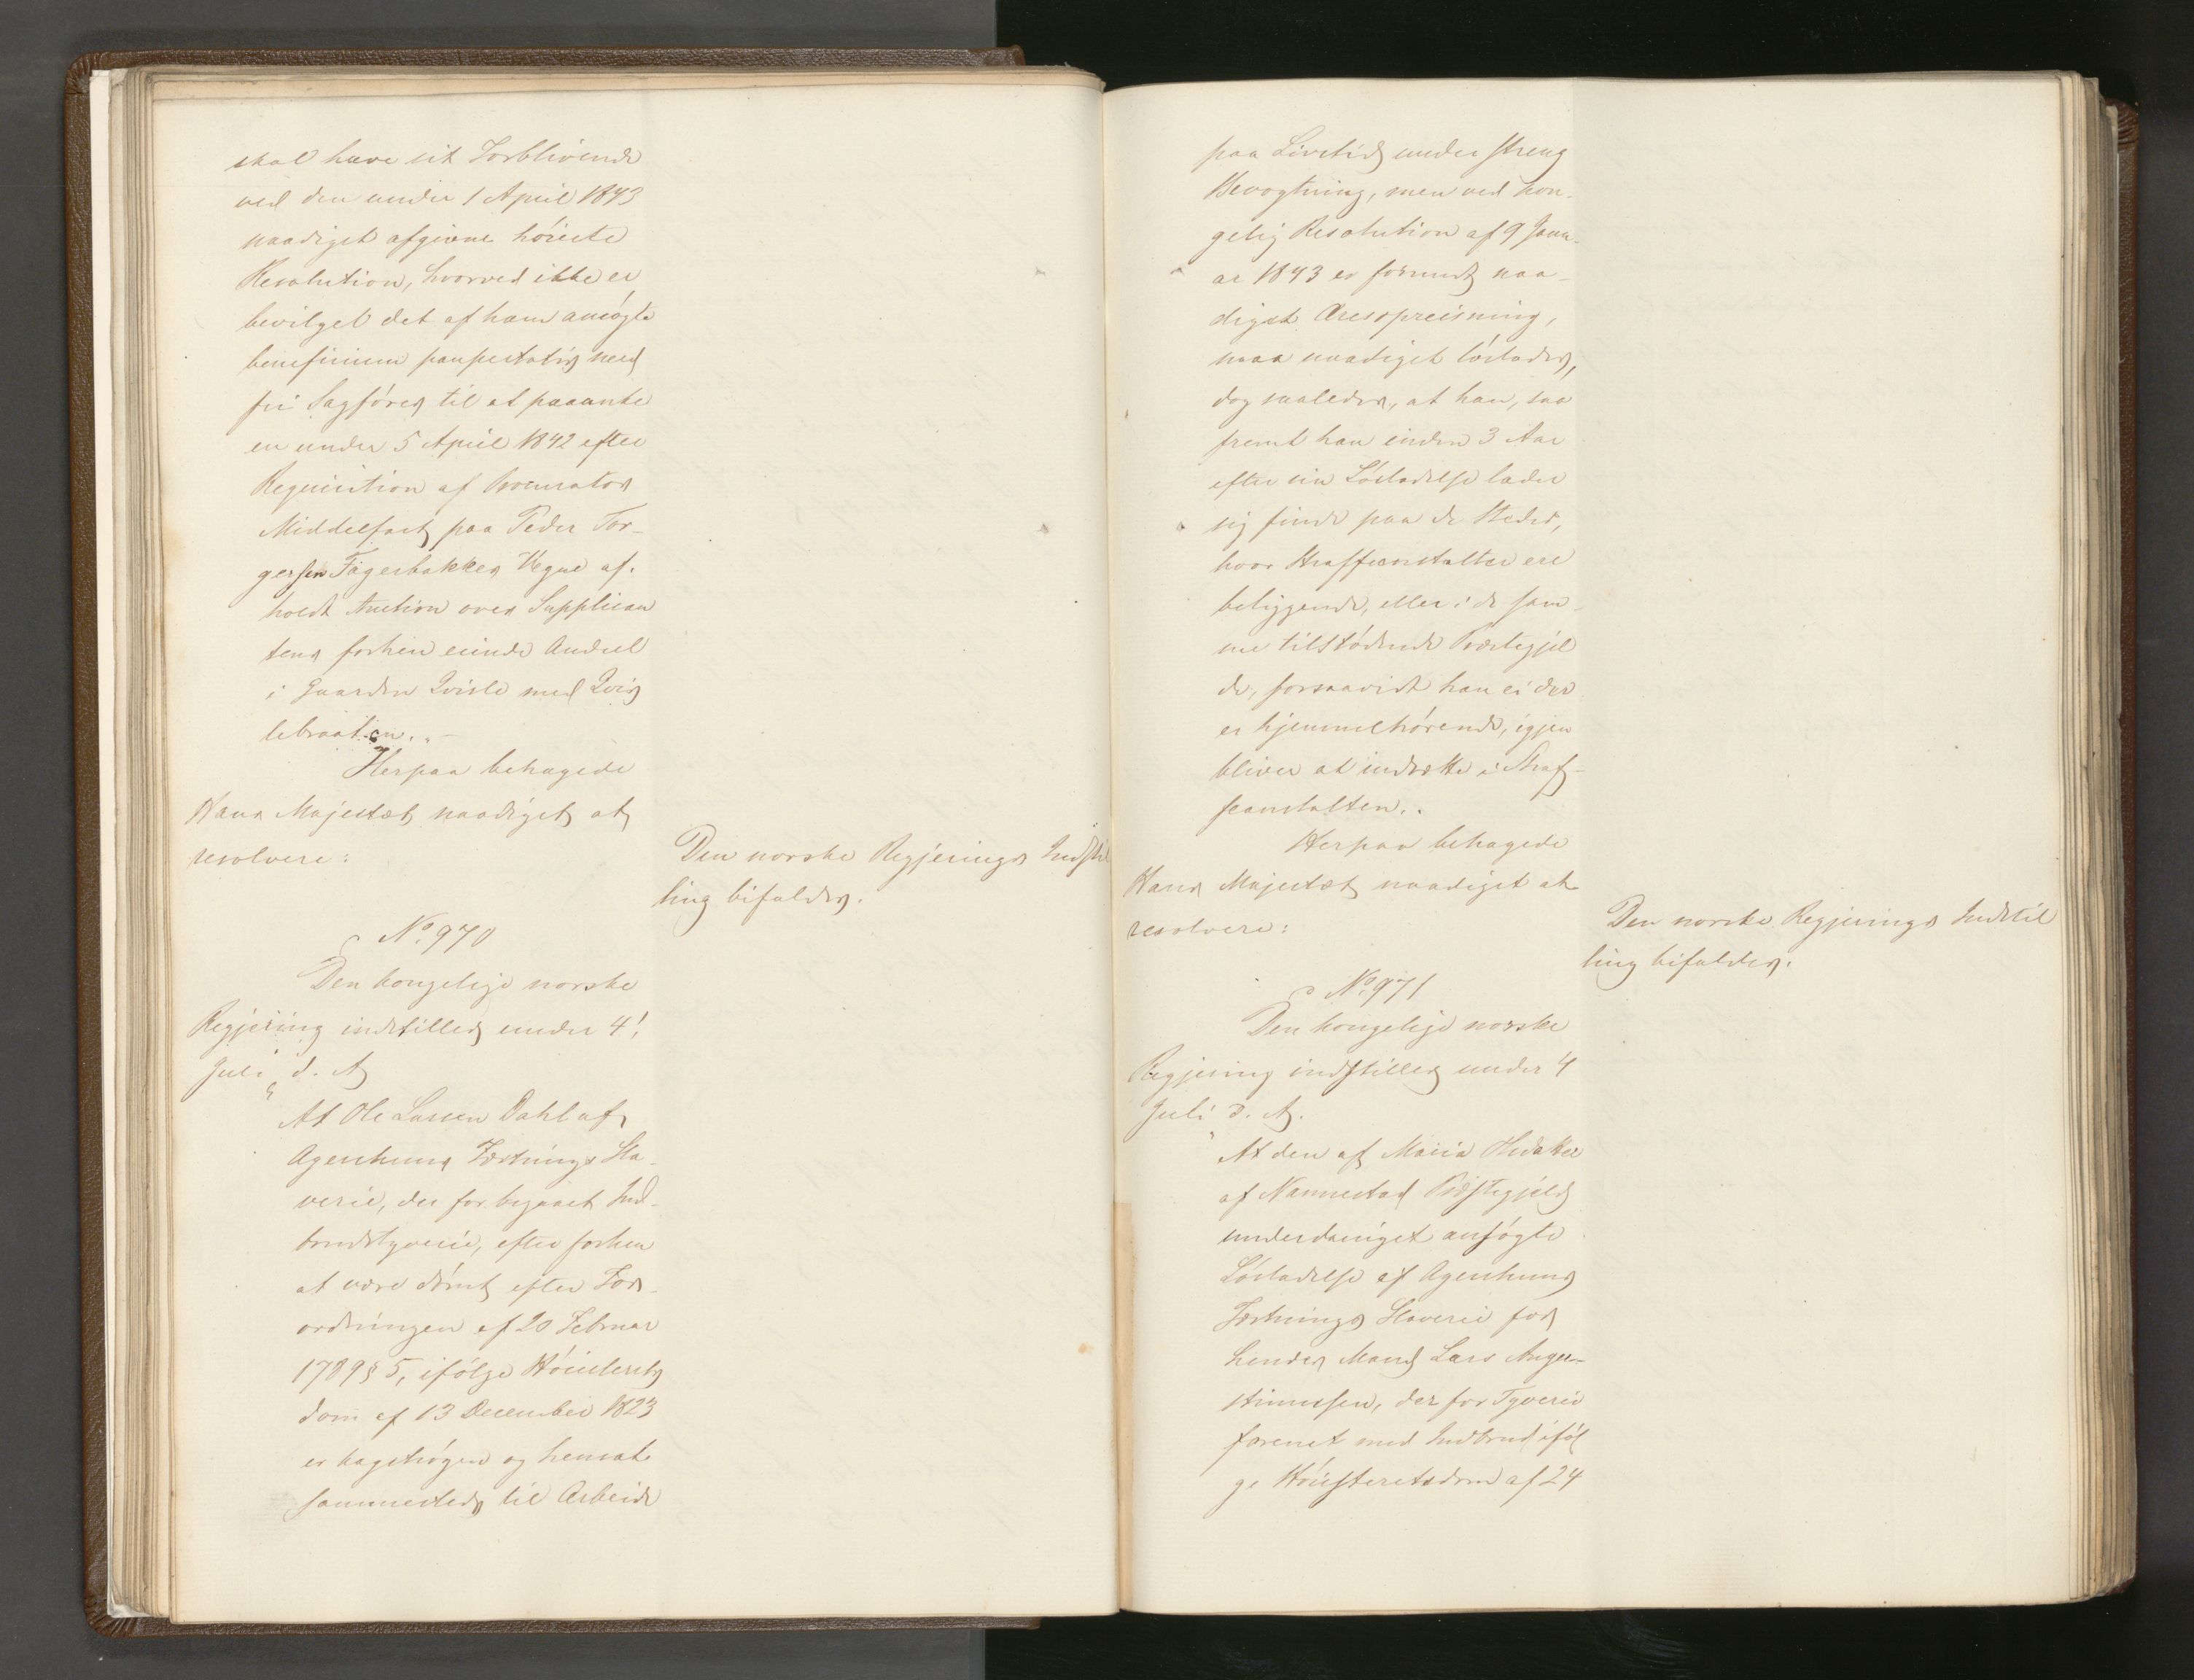 skal have sit Forblivende
ved den under 1 April 1843
naadigst afgivne höieste
Resolution, hvorved ikke er
bevilget det af ham ansögte
beneficium paupertatis med
fri Sagförer til at paaanke
en under 5 April 1842 efter
Requisition af Procurator
Middelfart paa Peder Tor-
gersen Fagerbakkes Vegne af-
holdt Auction over Supplican
tens forhen eiende Andeel
i Gaarden Qvisle med Qvis
lebraaten.
Herpaa behagede
Hans Majestæt naadigst at
resolvere:
Den norske Regjerings Indstil
ling bifaldes.
No. 970
Den kongelige norske
Regjering indstiller under 4
Juli d. A.
At Ole Larsen Dahl af
Agershuus Fæstnings Sla-
verie, der for begaaet Ind-
brudstyverie, efter forhen
at være dömt efter For-
ordningen af 20 Februar
1789 § 5, ifölge Höiesterets
dom af 13 December 1823
er kagströgen og hensat
sammesteds til Arbeide
paa Livstid under streng
Bevogtning, men ved kon-
gelig Resolution af 9 Janu-
ar 1843 er forundt naa-
digst Æresopreisning,
maa naadigst löslades,
dog saaledes, at han, saa
fremt han inden 3 Aar
efter sin Lösladelse lader
sig finde paa de Steder,
hvor Straffeanstalter ere
beliggende, eller i de sam-
me tilstödende Præstegjel
de, forsaavidt han ei der
er hjemmehörende, igjen
bliver at indsætte i Straf-
feanstalten.
Herpaa behagede
Hans Majestæt naadigst at
resolvere:
Den norske Regjerings Indstil
ling bifaldes.
No. 971
Den kongelige norske
Regjering indstiller under 4
Juli d. A.
At den af Maria
af Nannestad Præstegjeld
underdanigst ansögte
Lösladelse af Agershuus
Fæstnings Slaverie for
hendes Mand Lars Anger-
stinussen, der for Tyverie
forenet med Indbrud iföl
ge Höiesteretsdom af 24